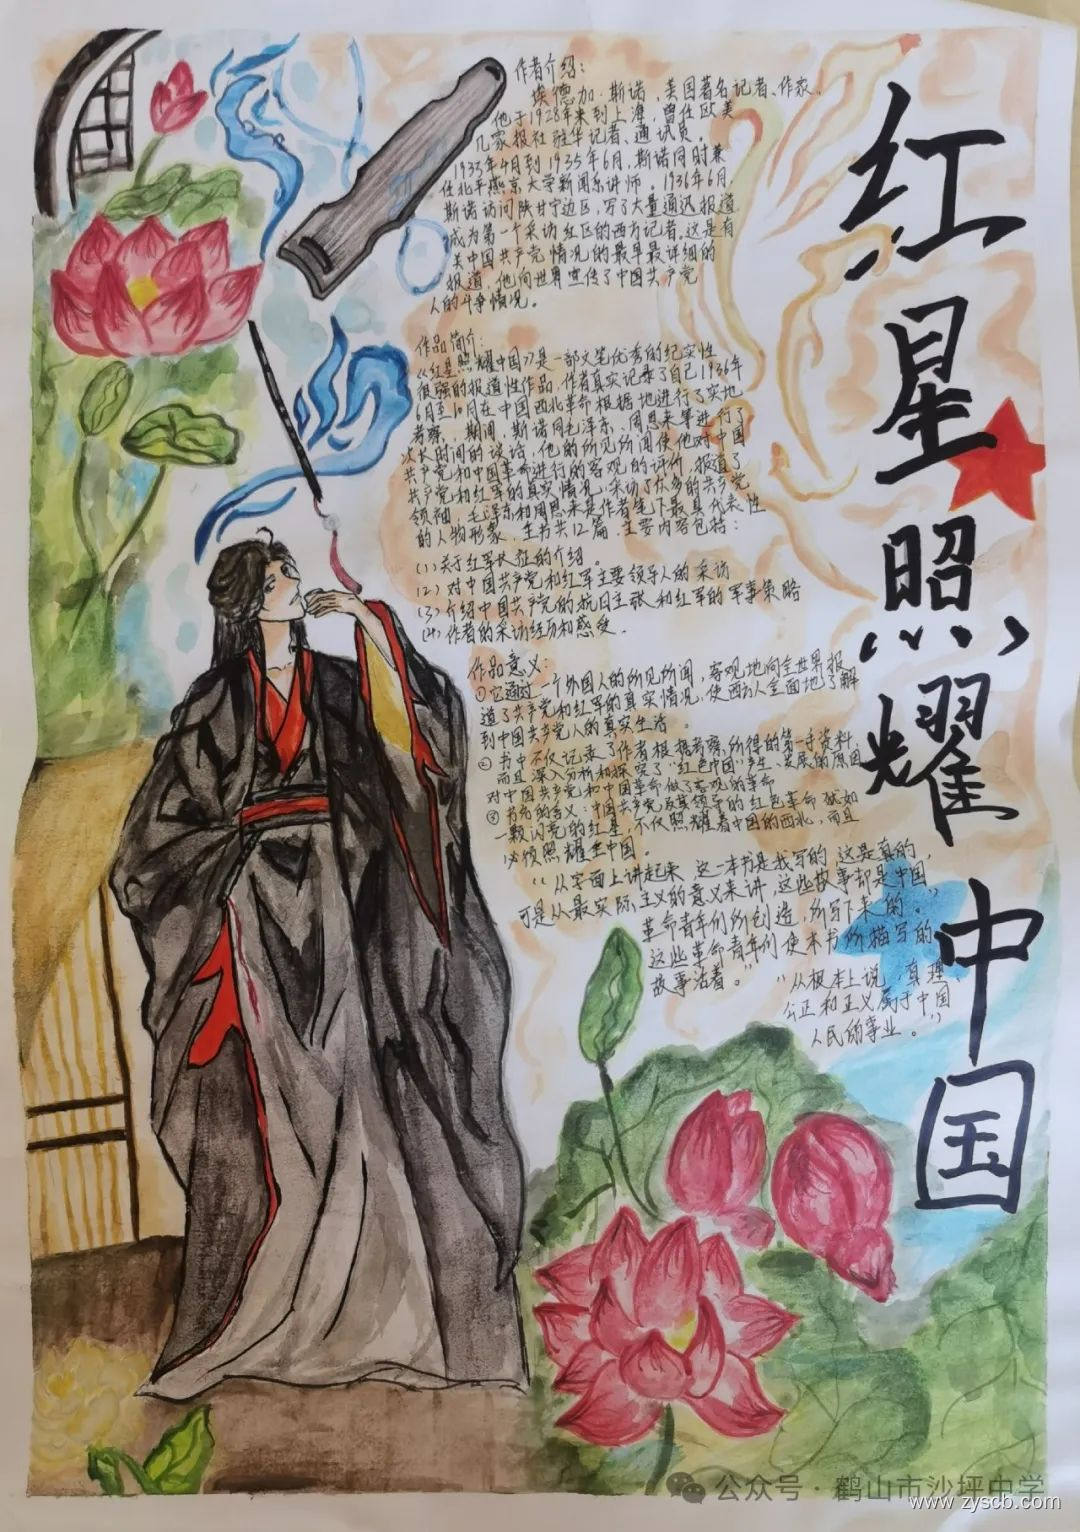 红星照耀中国
作者介绍：
埃德加·斯诺，美国著名记者、作家。
他于1928年来到上海，曾任欧美
几家报社驻华记者、通讯员。
1933年4月到1935年6月，斯诺同时兼
任北平燕京大学新闻系讲师。1936年6月
斯诺访问陕甘宁边区，写了大量通迅报道
成为第一个采访红区的西方记者。这是有
关中国共产党情况的最早最详细的
报道，他向世界宣传了中国共产党
人的斗争情况。
作品简介：
《红星照耀中国》是一部文笔优秀的纪实性
很强的报道性作品。作者真实记录了自己1936年
6月至10月在中国西北革命根据地进行了实地
考察，期间，斯诺同毛泽东、周恩来等进行了
次长时间的谈话，他的所见所闻使他对中国
共产党和中国革命进行的客观的评价，报道了
共产党和红军的真实情况，采访了众多的共产党
领袖，毛泽东和周恩来是作者笔下最具代表性
的人物形象，全书共12篇，主要内容包括：
(1)关于红军长征的介绍。
(2)对中国共产党和红军主要领导人的采访
(3)介绍中国共产党的抗日主张和红军的军事策略
(4)作者的采访经历和感受。
作品意义：
①它通过一个外国人的所见所闻，客观地向全世界报
道了共产党和红军的真实情况，使西方人全面地了解
到中国共产党人的真实生活。
②书中不仅记录了作者根据考察所得的第一手资料，
而且深入分析和探究了“红色中国”产生、发展的原因
对中国共产党和中国革命做了客观的革命
③书名的含义：中国共产党及其领导的红色革命犹如
一颗闪亮的红星，不仅照耀着中国的西北，而且
必须照耀全中国。
“从字面上讲起来，这一本书是我写的，这是真的，
可是从最实际主义的意义来讲，这些故事都是中国
革命青年们所创造，所写下来的。”
这些革命青年们使本书所描写的
故事活着。”
“从根本上说，真理、
公正和正义属于中国
人民的事业。”
公众号·鹤山市沙坪中学
www.zyscb.com